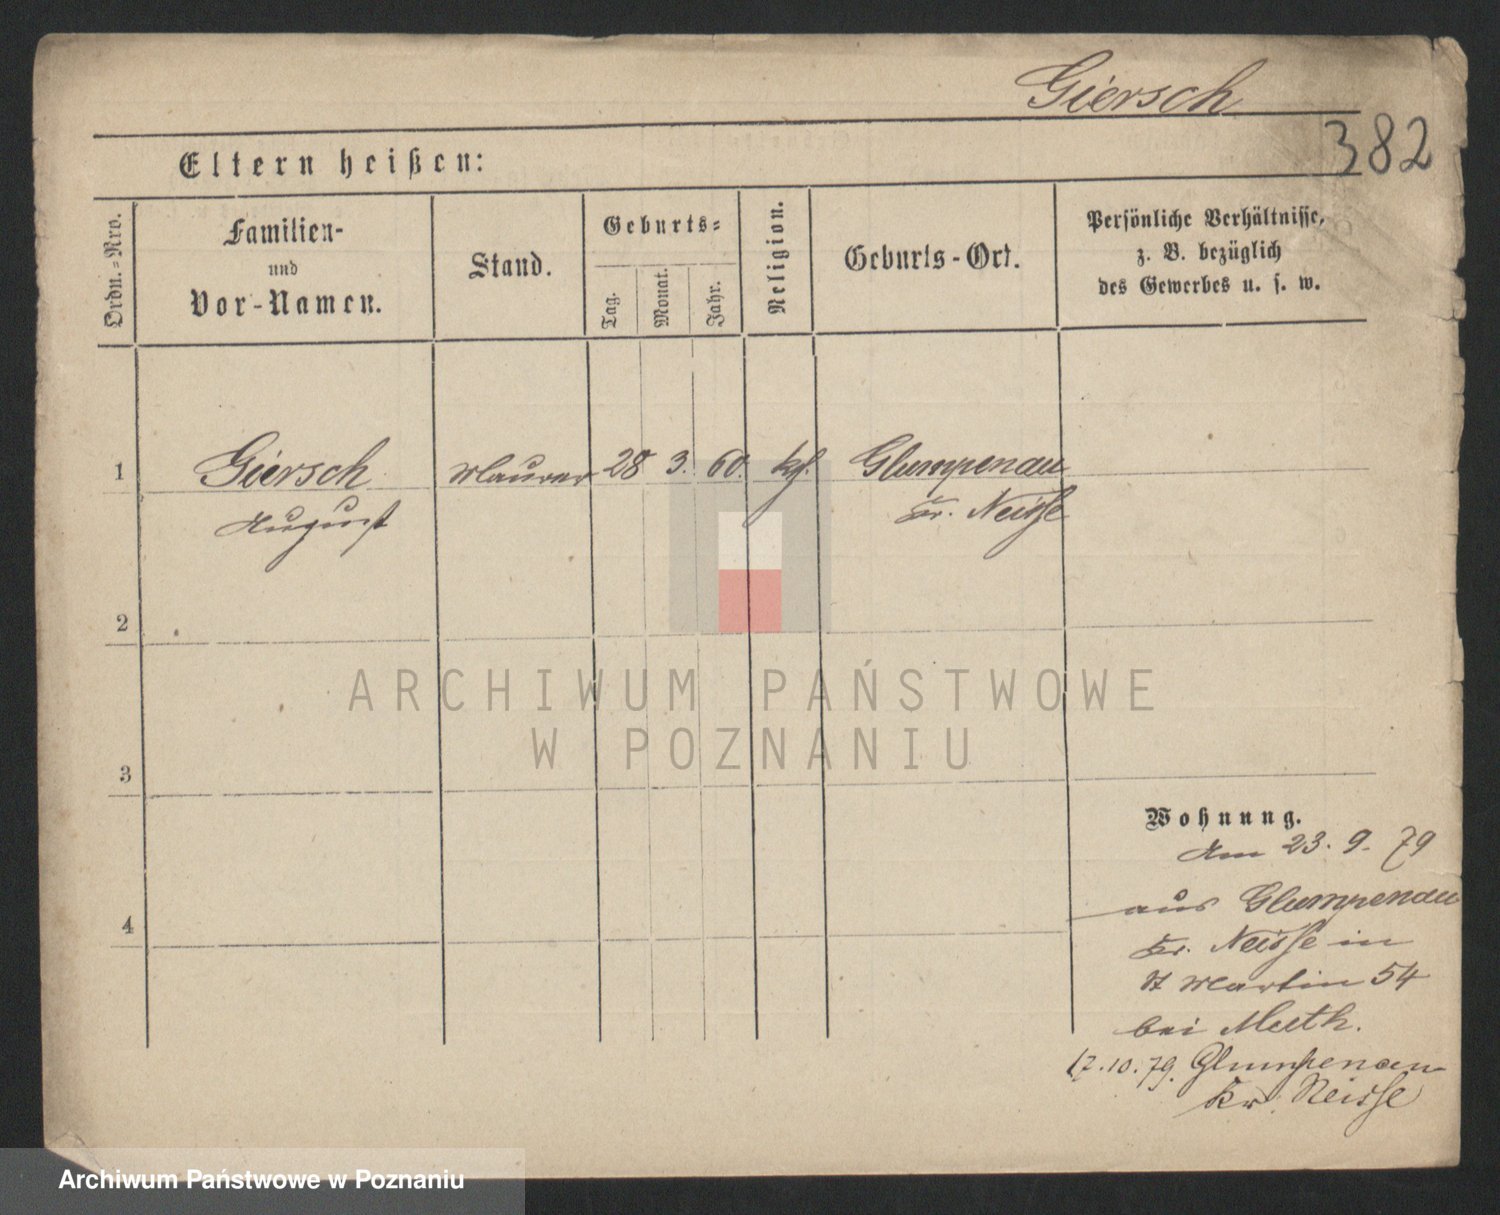 Giersch
382
Eltern heißen:
Ordn.-Nro.
Familien-
und
Vor-Namen.
Stand.
Geburts-
Tag.
Monat.
Jahr.
Religion.
Geburts-Ort.
Persönliche Verhältnisse,
z. B. bezüglich
des Gewerbes u. s. w.
1 Giersch Maurer 28 3. 60. kf. Glumpenau
August Kr. Neisse
2
3
4
Wohnung.
Am 23. 9. 79
aus Glumpenau
Kr. Neisse in
St Martin 54
bei Muth.
17.10.79. Glumpenau
Kr. Neisse
ARCHIWUM PAŃSTWOWE
W POZNANIU
Archiwum Państwowe w Poznaniu